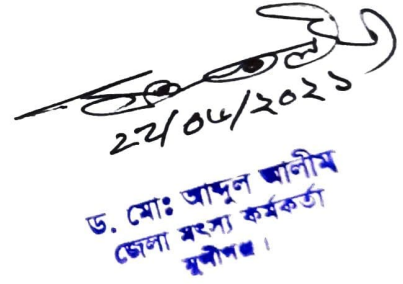 ২২/০৮/২০২১
ড. মোঃ আব্দুল আলীম
জেলা মৎস্য কর্মকর্তা
মুন্সীগঞ্জ।